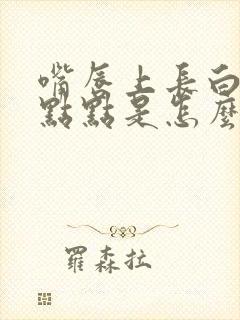 嘴唇上長白
點點是怎麼
羅森拉